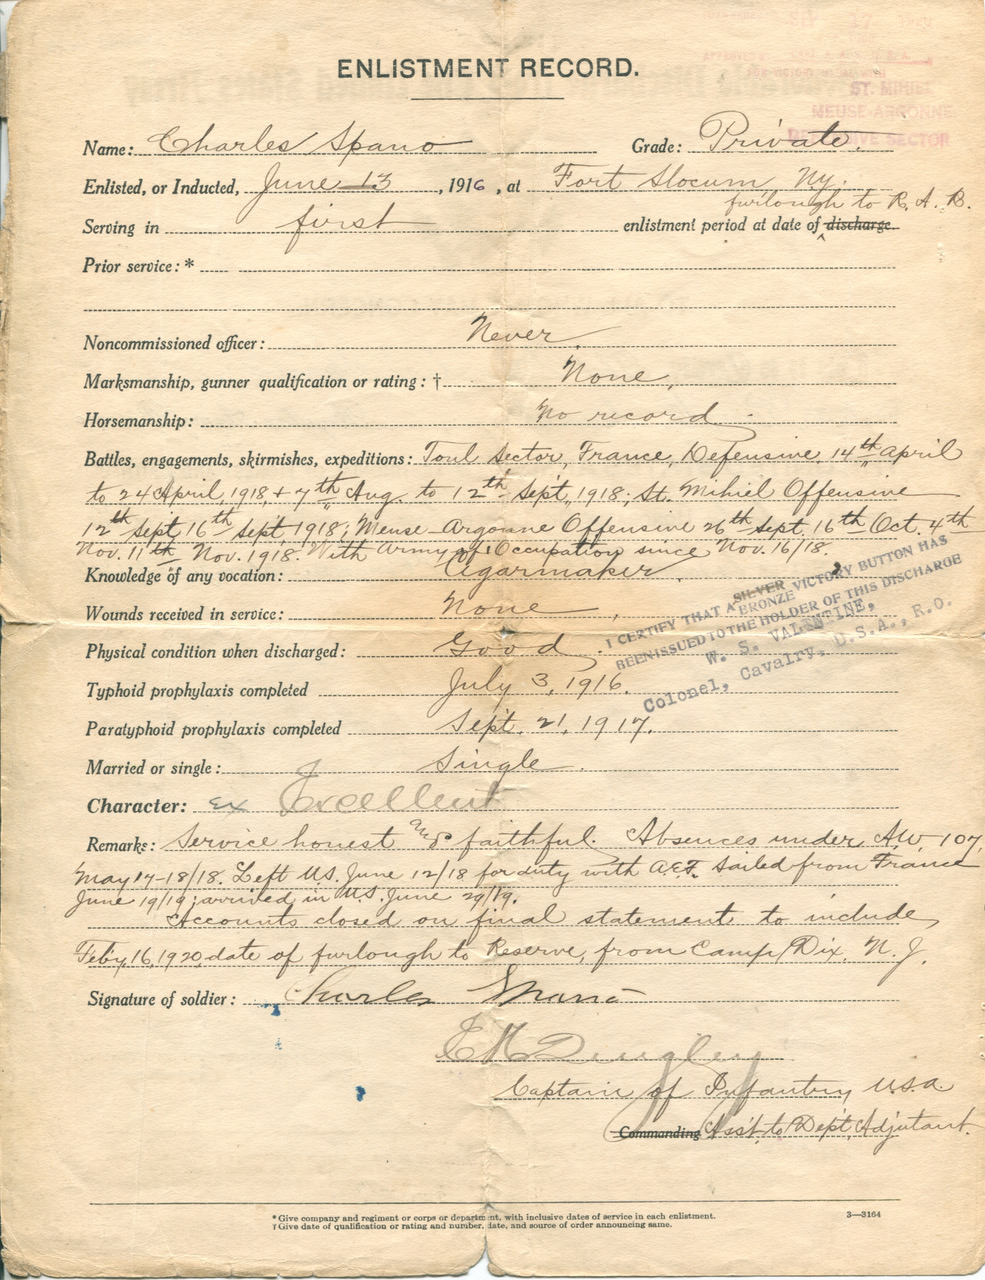 ENLISTMENT RECORD.
ST. MIHIEL
MEUSE-ARGONNE
DEFENSIVE SECTOR
Name: Charles Spano Grade: Private.
Enlisted, or Inducted, June 13, 1916, at Fort Slocum, NY.
furlough to R. A. R.
Serving in first enlistment period at date of discharge
Prior service: *
Noncommissioned officer: Never.
Marksmanship, gunner qualification or rating: † None.
Horsemanship: No record
Battles, engagements, skirmishes, expeditions: Toul Sector, France, Defensive, 14th April
to 24 April, 1918 + 7th Aug. to 12th Sept, 1918; St. Mihiel Offensive
12th Sept, 16th Sept, 1918; Meuse-Argonne Offensive 26th Sept. 16th Oct. 4th
Nov. 11th Nov. 1918. With Army of Occupation since Nov. 16/18.
Knowledge of any vocation: Cigarmaker.
Wounds received in service: None
I CERTIFY THAT A SILVER BRONZE VICTORY BUTTON HAS
BEEN ISSUED TO THE HOLDER OF THIS DISCHARGE
W. S. VALENTINE,
Colonel, Cavalry, U.S.A., R.O.
Physical condition when discharged: Good.
Typhoid prophylaxis completed July 3, 1916.
Paratyphoid prophylaxis completed Sept. 21, 1917.
Married or single: Single.
Character: Ex Excellent
Remarks: Service honest and faithful. Absences under AW-107,
May 17-18/18. Left US. June 12/18 for duty with A.E.F. Sailed from France
June 19/19; arrived in U.S. June 29/19.
Accounts closed on final statement to include
Feby 16, 1920, date of furlough to Reserve, from Camp Dix. N. J.
Signature of soldier: Charles Spano
Captain of Infantry U.S.A.
Commanding Ass't. to Dept. Adjutant.
* Give company and regiment or corps or department, with inclusive dates of service in each enlistment.
† Give date of qualification or rating and number, date, and source of order announcing same.
3—3164